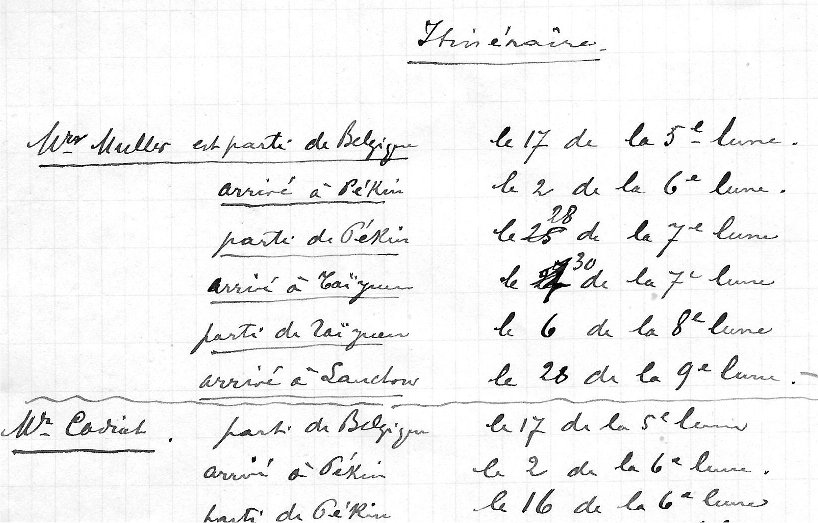 Itinéraire.
Mrs Muller est parti de Belgique le 17 de la 5e lune.
arrivé à Pékin le 2 de la 6e lune.
parti de Pékin le 28 de la 7e lune
arrivé à Taïyuen le 30 de la 7e lune
parti de Taïyuen le 6 de la 8e lune
arrivé à Lanchow le 28 de la 9e lune.
Mr Cadiat. parti de Belgique le 17 de la 5e lune
arrivé à Pékin le 2 de la 6e lune.
parti de Pékin le 16 de la 6e lune